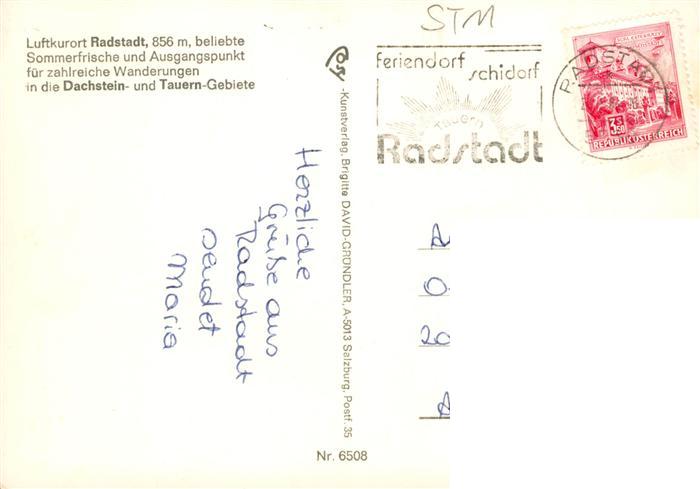 Luftkurort Radstadt, 856 m, beliebte
Sommerfrische und Ausgangspunkt
für zahlreiche Wanderungen
in die Dachstein- und Tauern-Gebiete
STM
feriendorf
schidorf
Tauern
Radstadt
RADSTADT
3.50
REPUBLIK ÖSTERREICH
Herzliche
Grüße aus
Radstadt
sendet
Maria
-Kunstverlag, Brigitte DAVID-GRÜNDLER, A-5013 Salzburg, Postf. 35
A
O
20
A
Nr. 6508